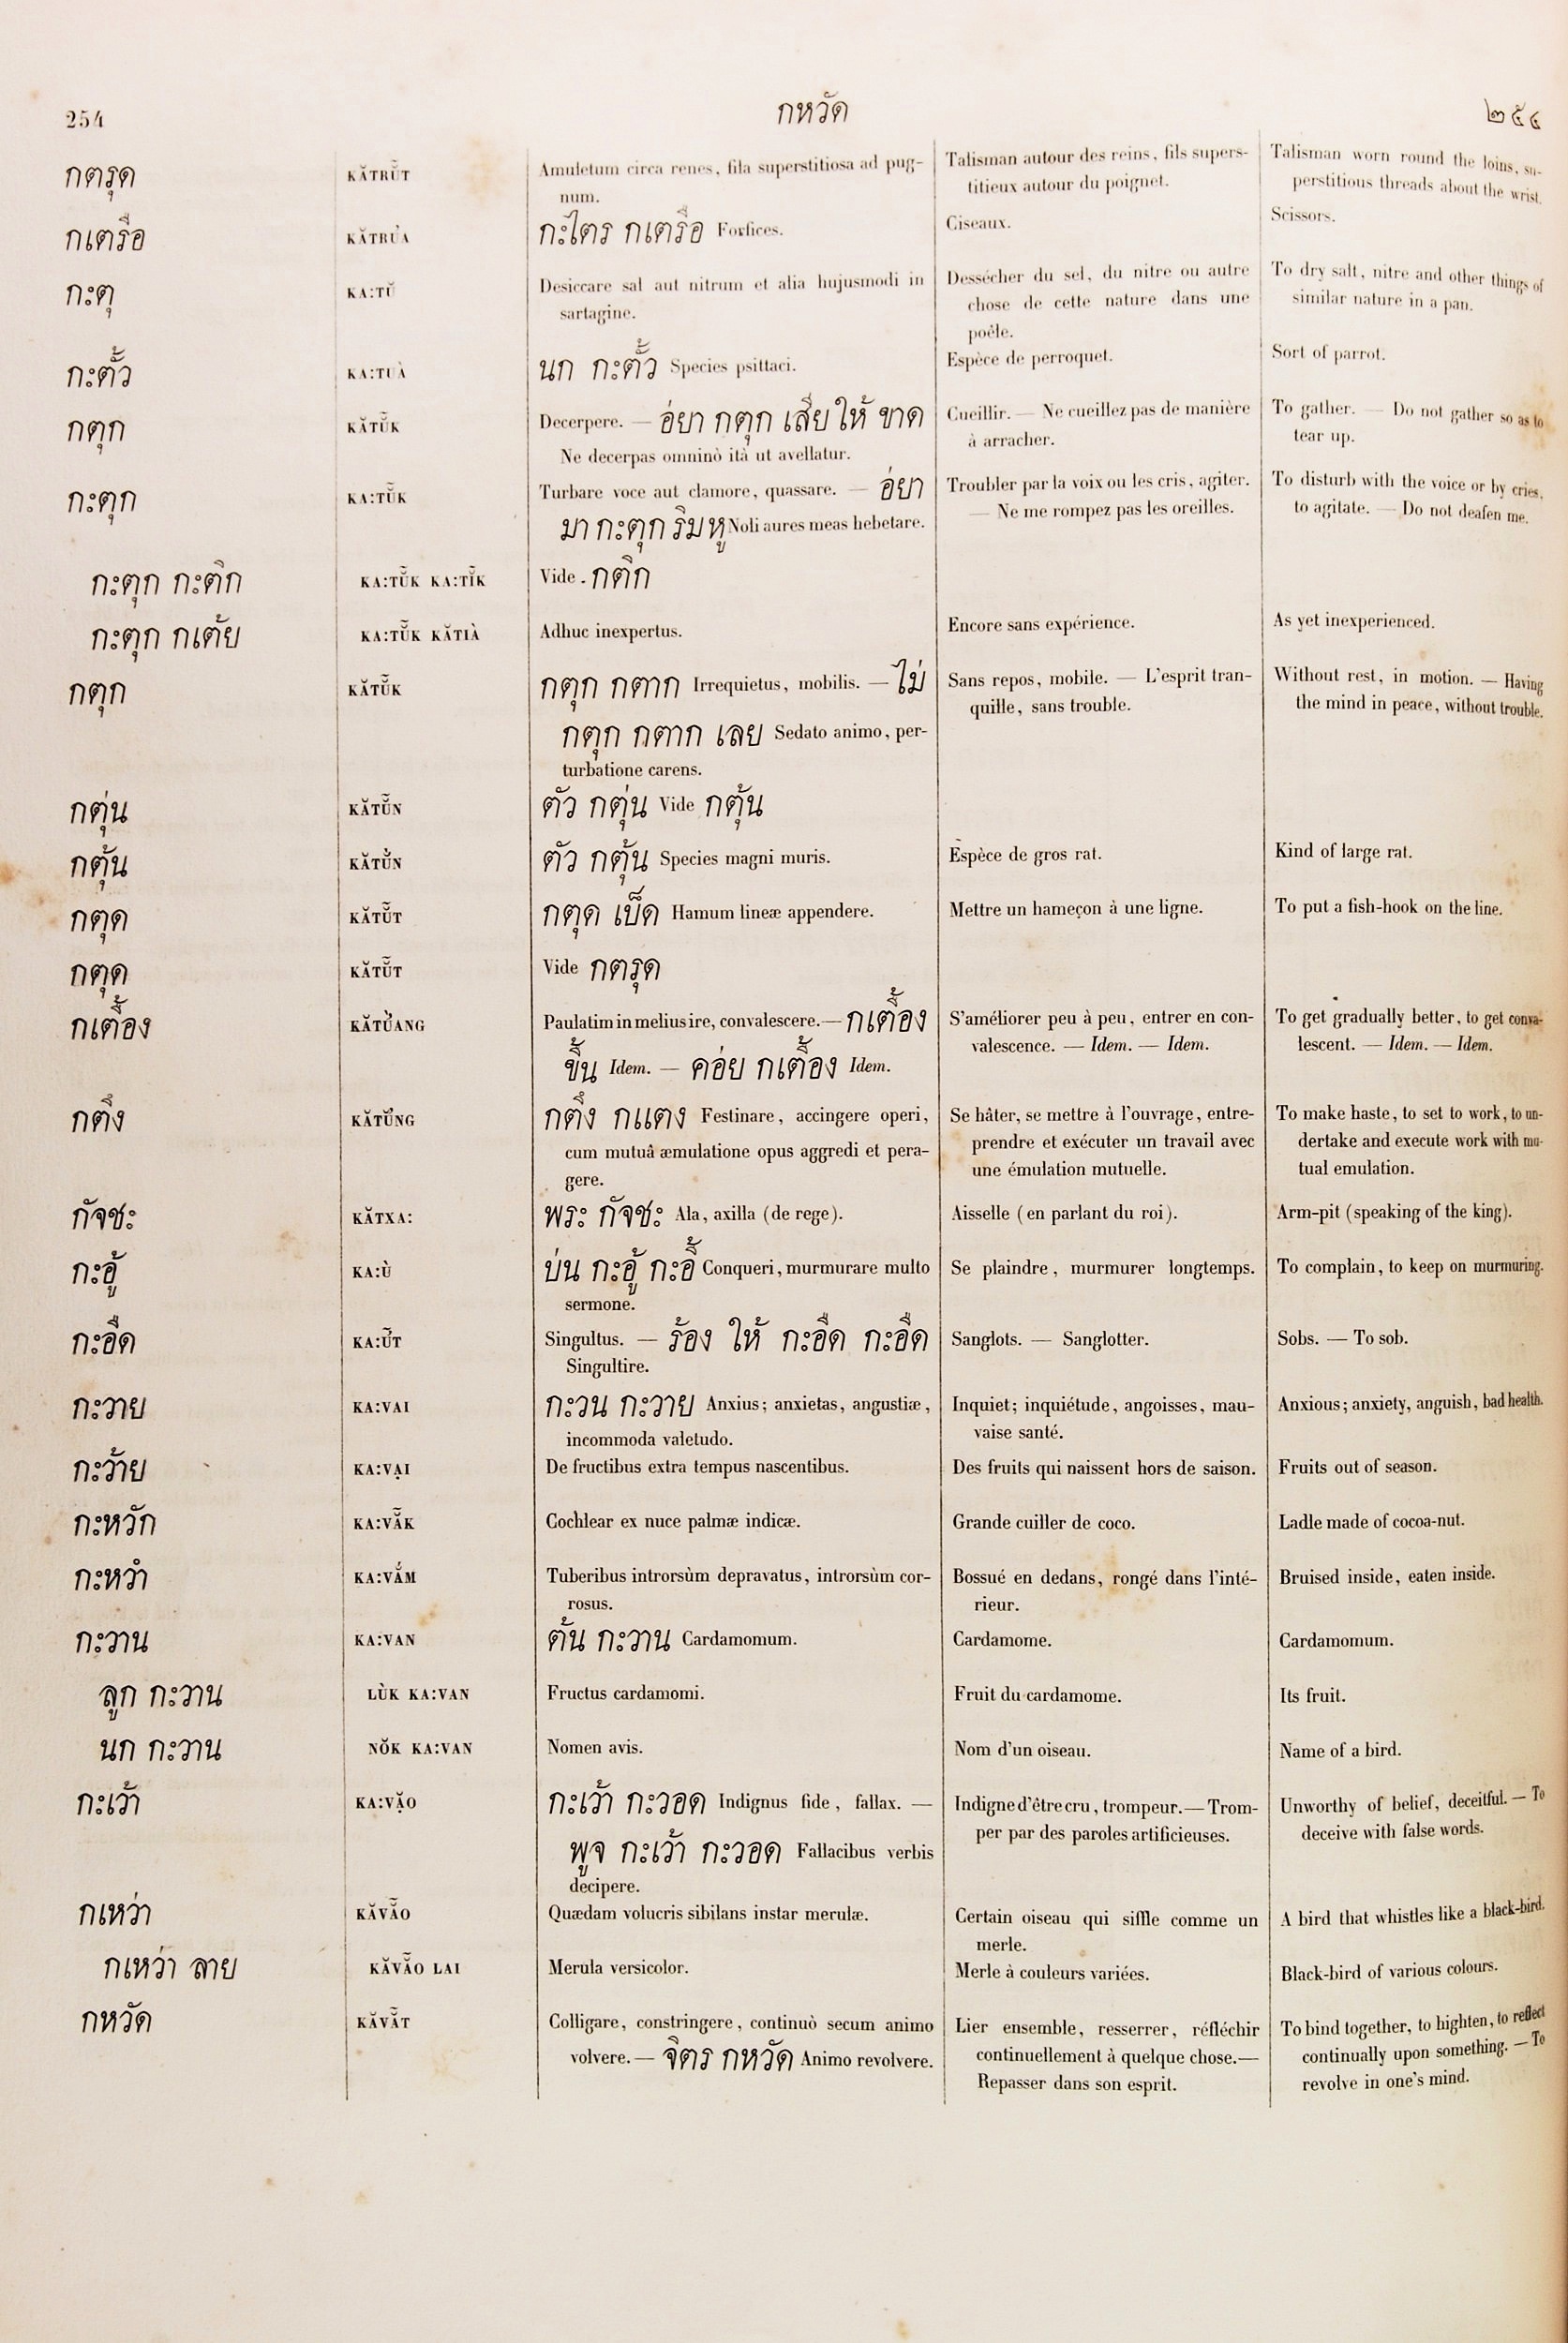 254 กหวัด ๒๕๔
กตรุด KĂTRŬT Amuletum circa renes, fila superstitiosa ad pug- Talisman autour des reins, fils supers- Talisman worn round the loins, su-
num. titieux autour du poignet. perstitious threads about the wrist.
กเตรือ KĂTRU'A กะไตร กเตรือ Forfices. Ciseaux. Scissors.
กะตุ KA:TŬ Desiccare sal aut nitrum et alia hujusmodi in Dessécher du sel, du nitre ou autre To dry salt, nitre and other things of
sartagine. chose de cette nature dans une similar nature in a pan.
poêle.
กะตั้ว KA:TUÀ นก กะตั้ว Species psittaci. Espèce de perroquet. Sort of parrot.
กตุก KĂTŬK Decerpere. — อ่ยา กตุก เสีย ให้ ขาด Cueillir. — Ne cueillez pas de manière To gather. — Do not gather so as to
Ne decerpas omninò ità ut avellatur. à arracher. tear up.
กะตุก KA:TŬK Turbare voce aut clamore, quassare. — อ่ยา Troubler par la voix ou les cris, agiter. To disturb with the voice or by cries,
มา กะตุก ริม หู Noli aures meas hebetare. — Ne me rompez pas les oreilles. to agitate. — Do not deafen me.
กะตุก กะติก KA:TŬK KA:TĬK Vide . กติก
กะตุก กเตัย KA:TŬK KĂTIÀ Adhuc inexpertus. Encore sans expérience. As yet inexperienced.
กตุก KĂTŬK กตุก กตาก Irrequietus, mobilis. — ไม่ Sans repos, mobile. — L'esprit tran- Without rest, in motion. — Having
กตุก กตาก เลย Sedato animo, per- quille, sans trouble. the mind in peace, without trouble.
turbatione carens.
กตุ่น KĂTŬN ตัว กตุ่น Vide กตุ้น
กตุ้น KĂTŬN ตัว กตุ้น Species magni muris. Espèce de gros rat. Kind of large rat.
กตุด KĂTŬT กตุด เบ็ด Hamum lineæ appendere. Mettre un hameçon à une ligne. To put a fish-hook on the line.
กตุด KĂTŬT Vide กตรุด
กเตื้อง KĂTU'ANG Paulatim in melius ire, convalescere. — กเตื้อง S'améliorer peu à peu, entrer en con- To get gradually better, to get conva-
ขึ้น Idem. — ค่อย กเตื้อง Idem. valescence. — Idem. — Idem. lescent. — Idem. — Idem.
กตึง KĂTŬ'NG กตึง กแตง Festinare, accingere operi, Se hâter, se mettre à l'ouvrage, entre- To make haste, to set to work, to un-
cum mutuâ æmulatione opus aggredi et pera- prendre et exécuter un travail avec dertake and execute work with mu-
gere. une émulation mutuelle. tual emulation.
กัจชะ KĂTXA: พระ กัจชะ Ala, axilla (de rege). Aisselle (en parlant du roi). Arm-pit (speaking of the king).
กะอู้ KA:Ù บ่น กะอู้ กะอี้ Conqueri, murmurare multo Se plaindre, murmurer longtemps. To complain, to keep on murmuring.
sermone.
กะอืด KA:U'T Singultus. — ร้อง ให้ กะอืด กะอืด Sanglots. — Sanglotter. Sobs. — To sob.
Singultire.
กะวาย KA:VAI กะวน กะวาย Anxius; anxietas, angustiæ, Inquiet; inquiétude, angoisses, mau- Anxious; anxiety, anguish, bad health.
incommoda valetudo. vaise santé.
กะว้าย KA:VẠI De fructibus extra tempus nascentibus. Des fruits qui naissent hors de saison. Fruits out of season.
กะหวัก KA:VĂK Cochlear ex nuce palmæ indicæ. Grande cuiller de coco. Ladle made of cocoa-nut.
กะหวำ KA:VĂM Tuberibus introrsùm depravatus, introrsùm cor- Bossué en dedans, rongé dans l'inté- Bruised inside, eaten inside.
rosus. rieur.
กะวาน KA:VAN ต้น กะวาน Cardamomum. Cardamome. Cardamomum.
ลูก กะวาน LÙK KA:VAN Fructus cardamomi. Fruit du cardamome. Its fruit.
นก กะวาน NŎK KA:VAN Nomen avis. Nom d'un oiseau. Name of a bird.
กะเว้า KA:VẶO กะเว้า กะวอด Indignus fide, fallax. — Indigne d'être cru, trompeur. — Trom- Unworthy of belief, deceitful. — To
พูจ กะเว้า กะวอด Fallacibus verbis per par des paroles artificieuses. deceive with false words.
decipere.
กเหว่า KĂVĂO Quædam volucris sibilans instar merulæ. Certain oiseau qui siffle comme un A bird that whistles like a black-bird.
merle.
กเหว่า ลาย KĂVĂO LAI Merula versicolor. Merle à couleurs variées. Black-bird of various colours.
กหวัด KĂVĂT Colligare, constringere, continuò secum animo Lier ensemble, resserrer, réfléchir To bind together, to highten, to reflect
volvere. — จิตร กหวัด Animo revolvere. continuellement à quelque chose. — continually upon something. — To
Repasser dans son esprit. revolve in one's mind.